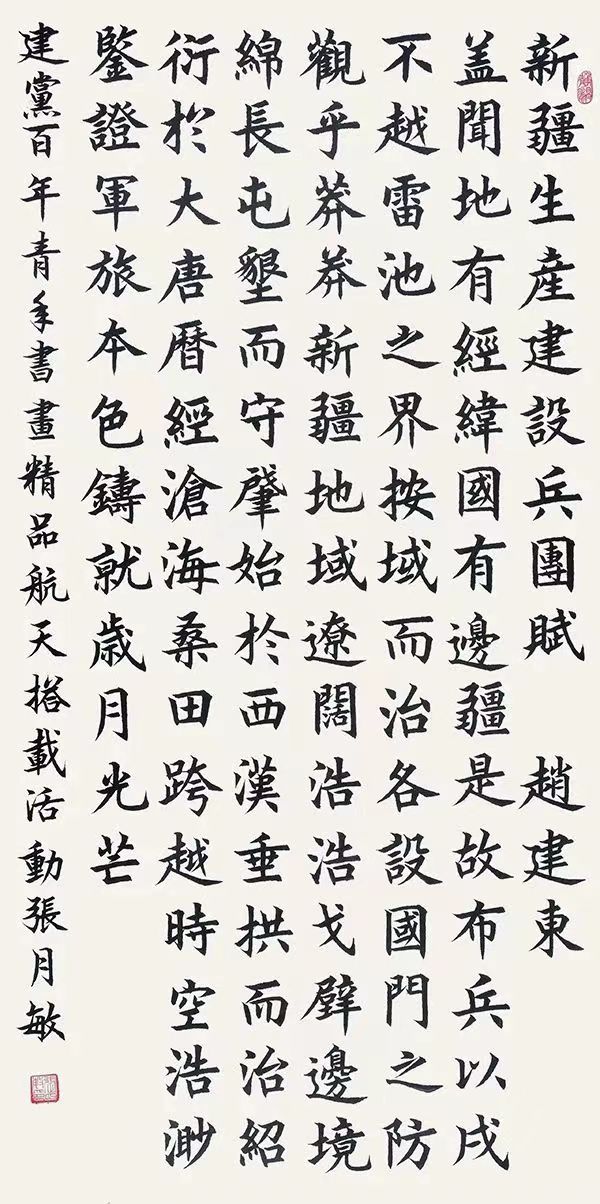 新疆生産建設兵團賦 趙建東
盖聞地有經緯國有邊疆是故布兵以戍
不越雷池之界按域而治各設國門之防
觀乎莽莽新疆地域遼闊浩浩戈壁邊境
綿長屯墾而守肇始於西漢垂拱而治紹
衍於大唐曆經滄海桑田跨越時空浩渺
鑒證軍旅本色鑄就歳月光芒
建黨百年青年書畫精品航天搭載活動張月敏